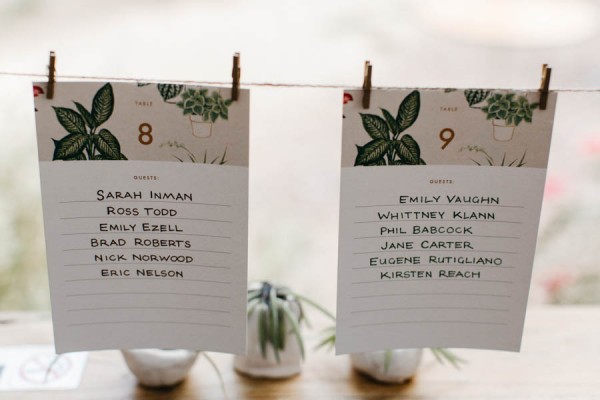 TABLE
8
GUESTS:
SARAH INMAN
ROSS TODD
EMILY EZELL
BRAD ROBERTS
NICK NORWOOD
ERIC NELSON
TABLE
9
GUESTS:
EMILY VAUGHN
WHITTNEY KLANN
PHIL BABCOCK
JANE CARTER
EUGENE RUTIGLIANO
KIRSTEN REACH